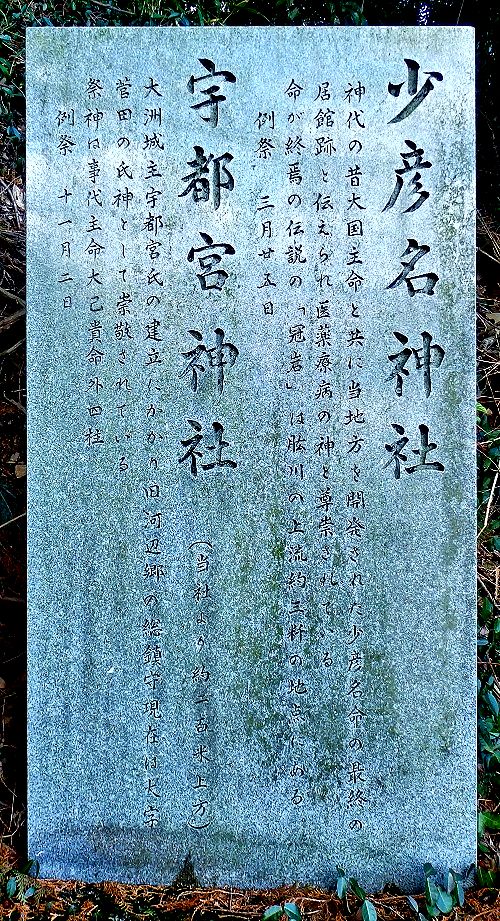 少彦名神社
神代の昔大国主命と共に当地方を開発された少彦名命の最終の
居館跡と伝えられ医薬療病の神と尊崇されている
命が終焉の伝説の「冠岩」は肱川の上流約三粁の地点にある
例祭 三月廿五日
宇都宮神社 (当社より約二百米上方)
大洲城主宇都宮氏の建立にかかり旧河辺郷の総鎮守現在は大字
菅田の氏神として崇敬されている
祭神は事代主命大己貴命外四柱
例祭 十一月二日